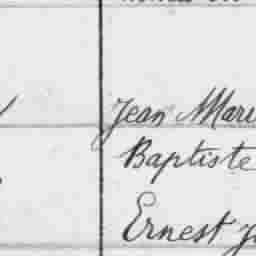 Jean Mari
Baptiste
Ernest